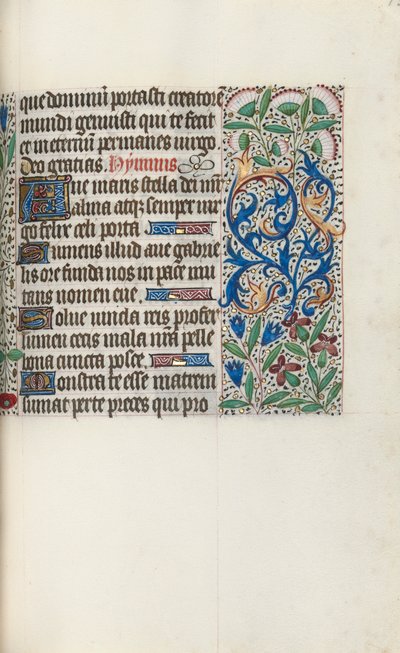 que dominum portasti creatorē
mundi genuisti qui te fecit
et in eternum permanes uirgo
Deo gratias. Hymnus
Aue maris stella dei mr̄
alma atqȝ semper uir
go felix celi porta
Sumens illud aue gabrie
lis ore funda nos in pace mu
tans nomen eue
Solue uincla reis profer
lumen cecis mala nr̄a pelle
bona cuncta posce
Monstra te esse matrem
sumat per te preces qui pro